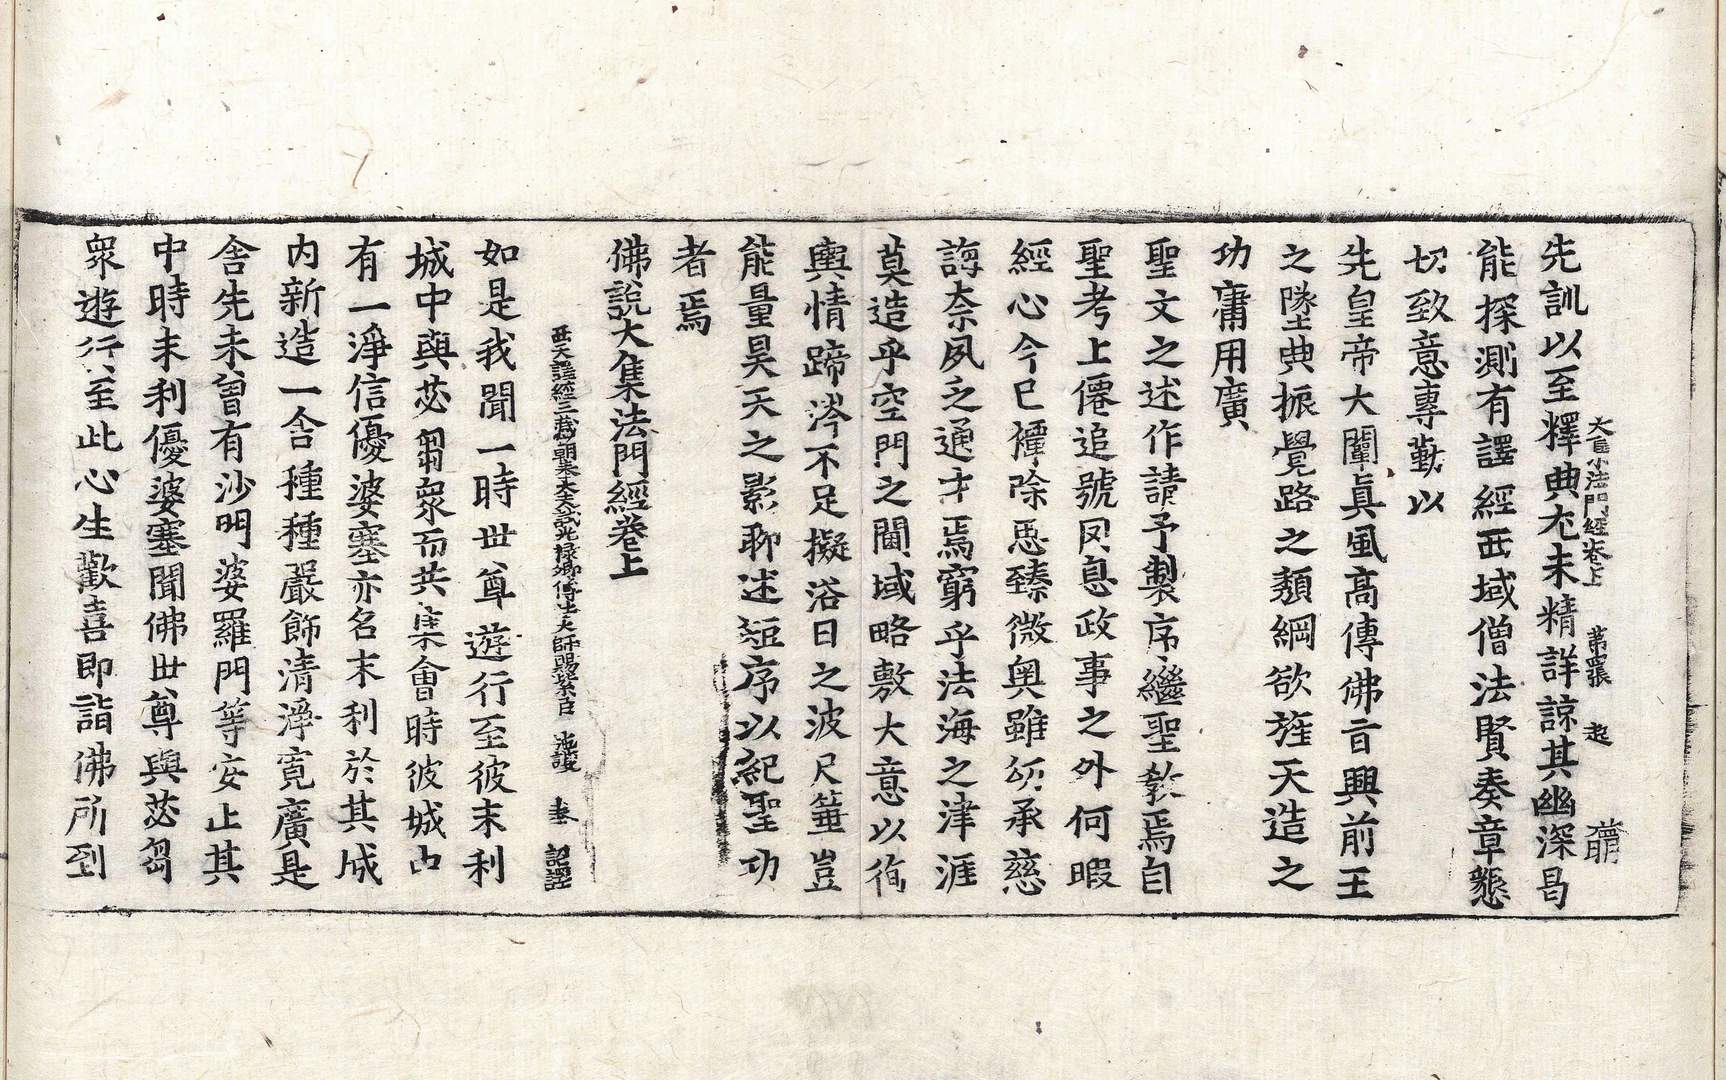 大集法門經卷上 第四張 起
先訓以至釋典尤未精詳諒其幽深曷
能探測有譯經西域僧法賢奏章懇
切致意專勤以
先皇帝大闡眞風高傳佛旨興前王
之墜典振覺路之頹綱欲旌天造之
功庸用廣
聖文之述作請予製序繼聖教焉自
聖考上僊追號罔息政事之外何暇
經心今已禫除恧臻微奧雖叨承慈
誨柰夙乏通才焉窮乎法海之津涯
莫造乎空門之閫域略敷大意以徇
輿情蹄涔不足擬浴日之波尺箠豈
能量昊天之影聊述短序以紀聖功
者焉
佛說大集法門經卷上
西天譯經三藏朝奉大夫試光祿卿傳法大師賜紫臣 施護 奉 詔譯
如是我聞一時世尊遊行至彼末利
城中與苾芻衆而共集會時彼城中
有一淨信優婆塞亦名末利於其城
內新造一舍種種嚴飾清淨寬廣是
舍先未曾有沙門婆羅門等安止其
中時末利優婆塞聞佛世尊與苾芻
衆遊行至此心生歡喜即詣佛所到